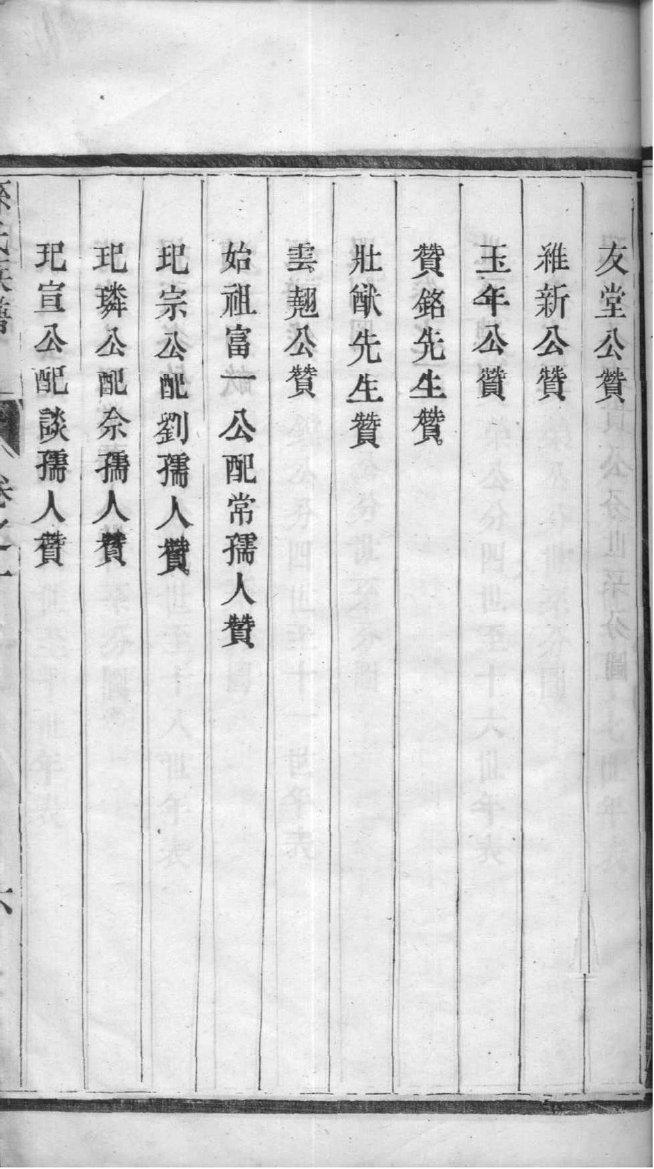 友堂公贊
維新公贊
玉年公贊
贊銘先生贊
壯猷先生贊
雲翹公贊
始祖富一公配常孺人贊
玘宗公配劉孺人贊
玘璘公配佘孺人贊
玘宣公配談孺人贊
氏族譜
卷之一